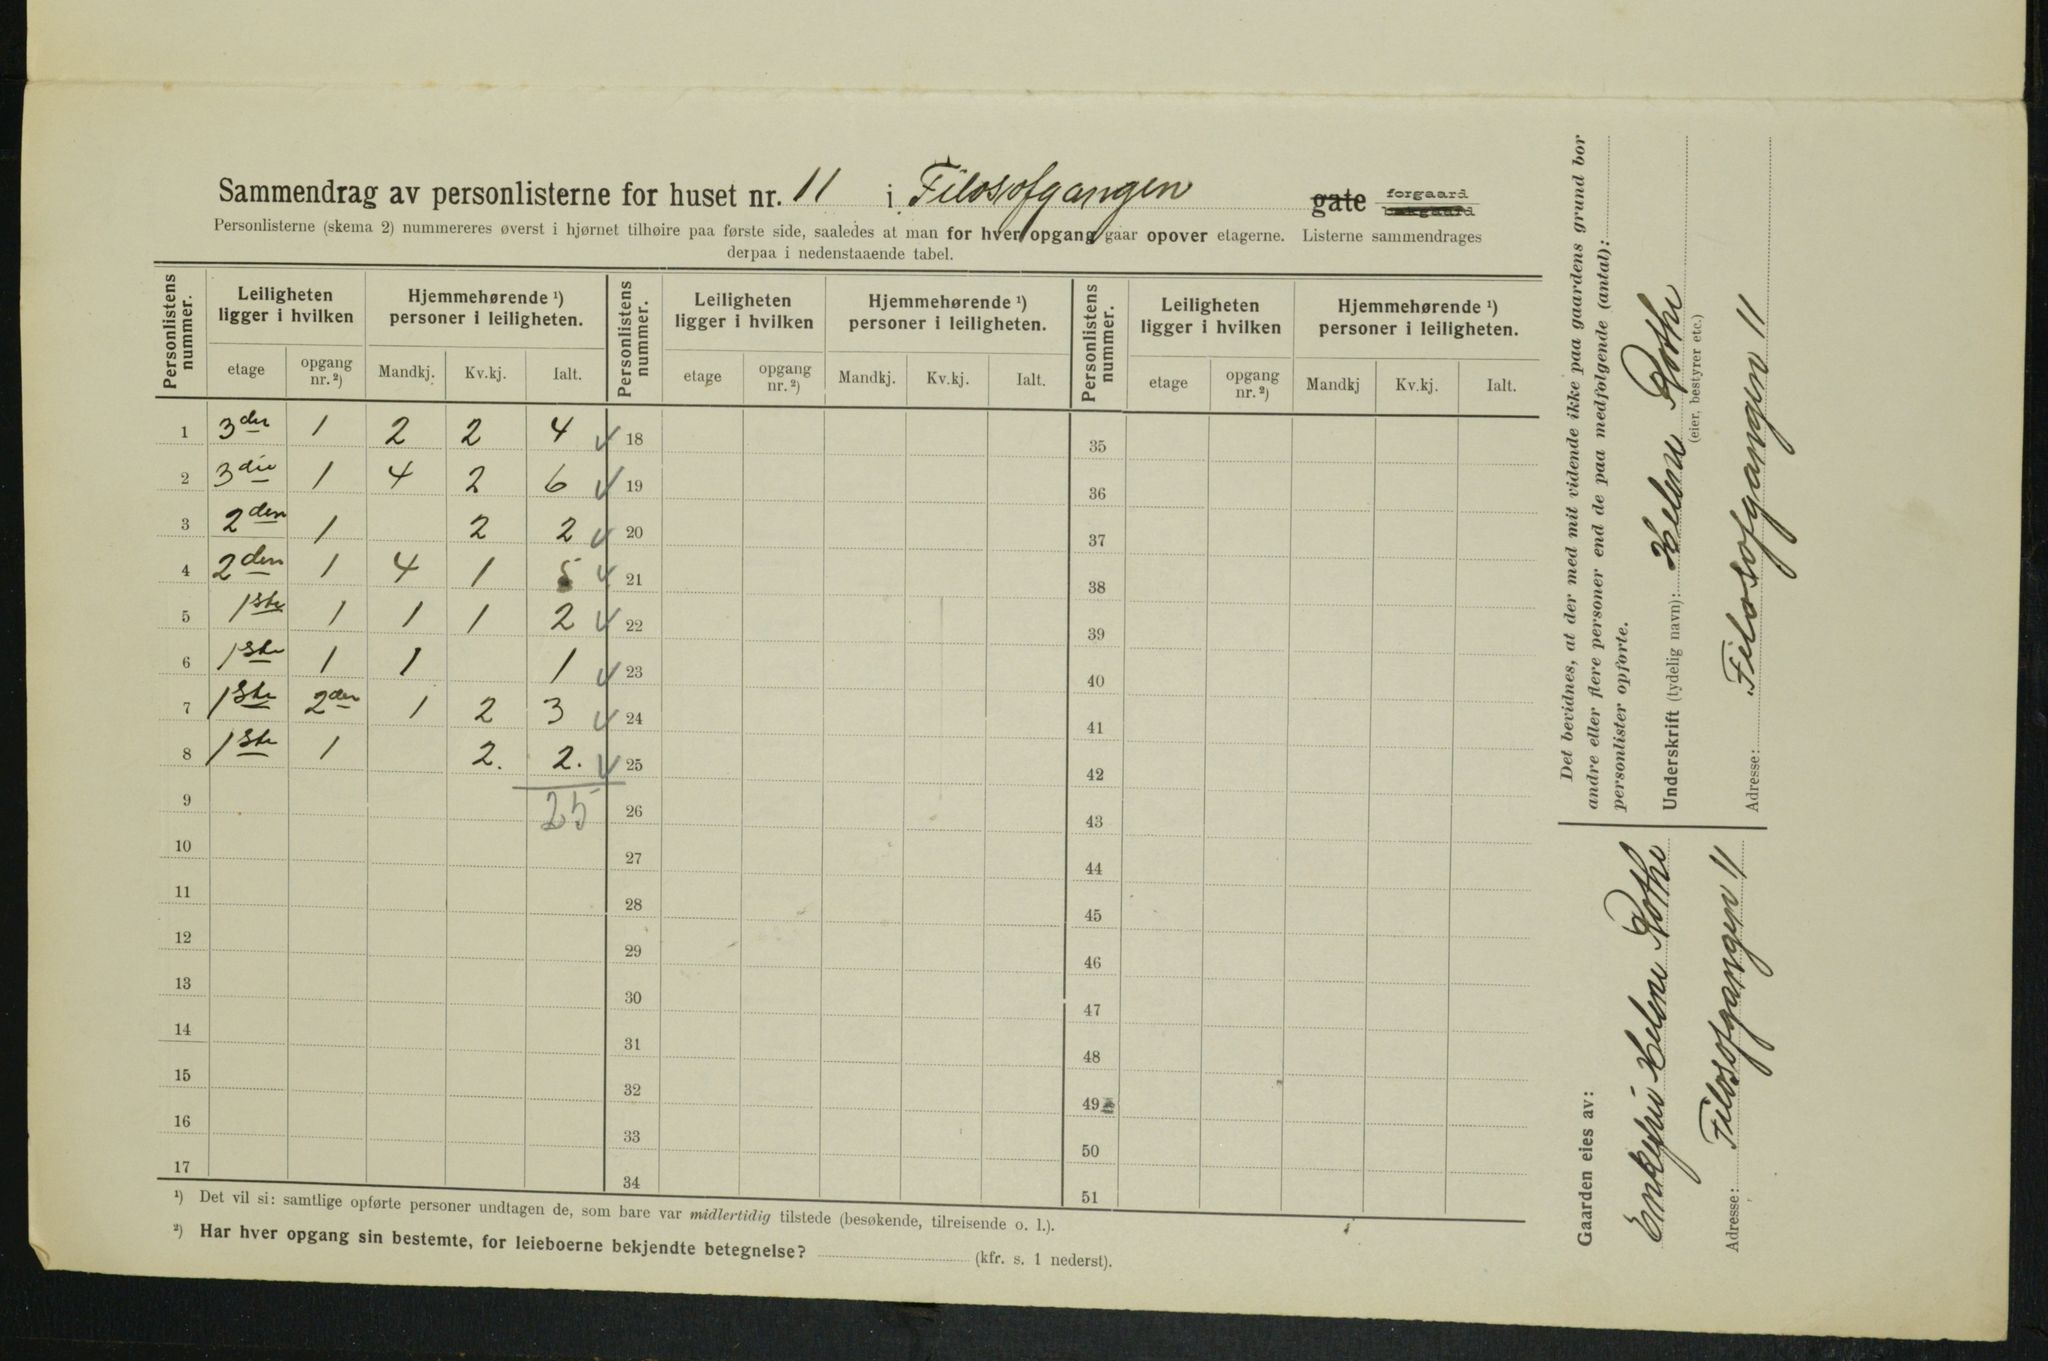 Sammendrag av personlisterne for huset nr. 11 i Filosofgangen gate forgaard bakgaard
Personlisterne (skema 2) nummereres øverst i hjørnet tilhøire paa første side, saaledes at man for hver opgang gaar opover etagerne. Listerne sammendrages
derpaa i nedenstaaende tabel.
Personlistens nummer. Leiligheten ligger i hvilken Hjemmehørende ¹) personer i leiligheten. Personlistens nummer. Leiligheten ligger i hvilken Hjemmehørende ¹) personer i leiligheten. Personlistens nummer. Leiligheten ligger i hvilken Hjemmehørende ¹) personer i leiligheten.
etage opgang nr. ²) Mandkj. Kv.kj. Ialt. etage opgang nr. ²) Mandkj. Kv.kj. Ialt. etage opgang nr. ²) Mandkj Kv.kj. Ialt.
1 3den 1 2 2 4 ✓ 18 35
2 3die 1 4 2 6 ✓ 19 36
3 2den 1 2 2 ✓ 20 37
4 2den 1 4 1 5 ✓ 21 38
5 1ste 1 1 1 2 ✓ 22 39
6 1ste 1 1 1 ✓ 23 40
7 1ste 2den 1 2 3 ✓ 24 41
8 1ste 1 2. 2. ✓ 25 42
9 25 26 43
10 27 44
11 28 45
12 29 46
13 30 47
14 31 48
15 32 49
16 33 50
17 34 51
¹) Det vil si: samtlige opførte personer undtagen de, som bare var midlertidig tilstede (besøkende, tilreisende o. l.).
²) Har hver opgang sin bestemte, for leieboerne bekjendte betegnelse? (kfr. s. 1 nederst).
Det bevidnes, at der med mit vidende ikke paa gaardens grund bor
andre eller flere personer end de paa medfølgende (antal):
personlister opførte.
Underskrift (tydelig navn): Helene Rothe
(eier, bestyrer etc.)
Adresse: Filosofgangen 11
Gaarden eies av:
Enkefru Helene Rothe
Adresse: Filosofgangen 11